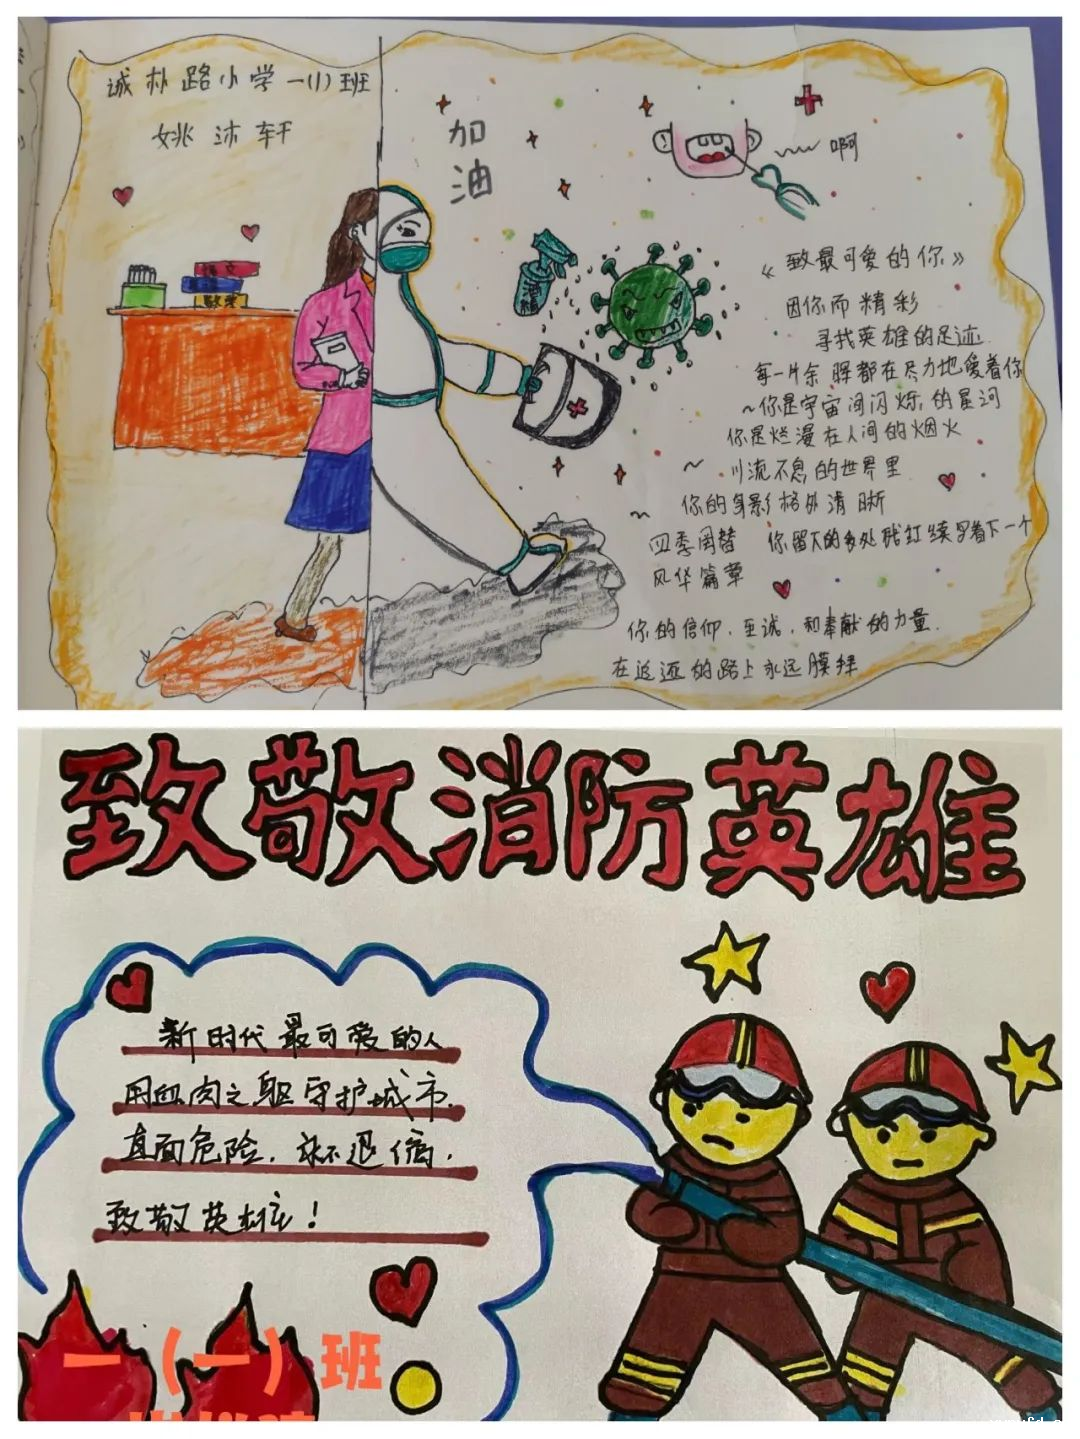 诚朴路小学一(1)班
姚沐轩
加油
啊
酒精
语文
数学
《致最可爱的你》
因你而精彩
寻找英雄的足迹
每一片余晖都在尽力地爱着你
~你是宇宙间闪烁的星河
你是烂漫在人间的烟火
~川流不息的世界里
~你的身影格外清晰
四季周替 你留下的
风华篇章
你的信仰,至诚,和奉献的力量.
在追逐的路上永远膜拜
致敬消防英雄
新时代最可爱的人
用血肉之躯守护城市.
直面危险,永不退缩.
致敬英雄!
一（一）班